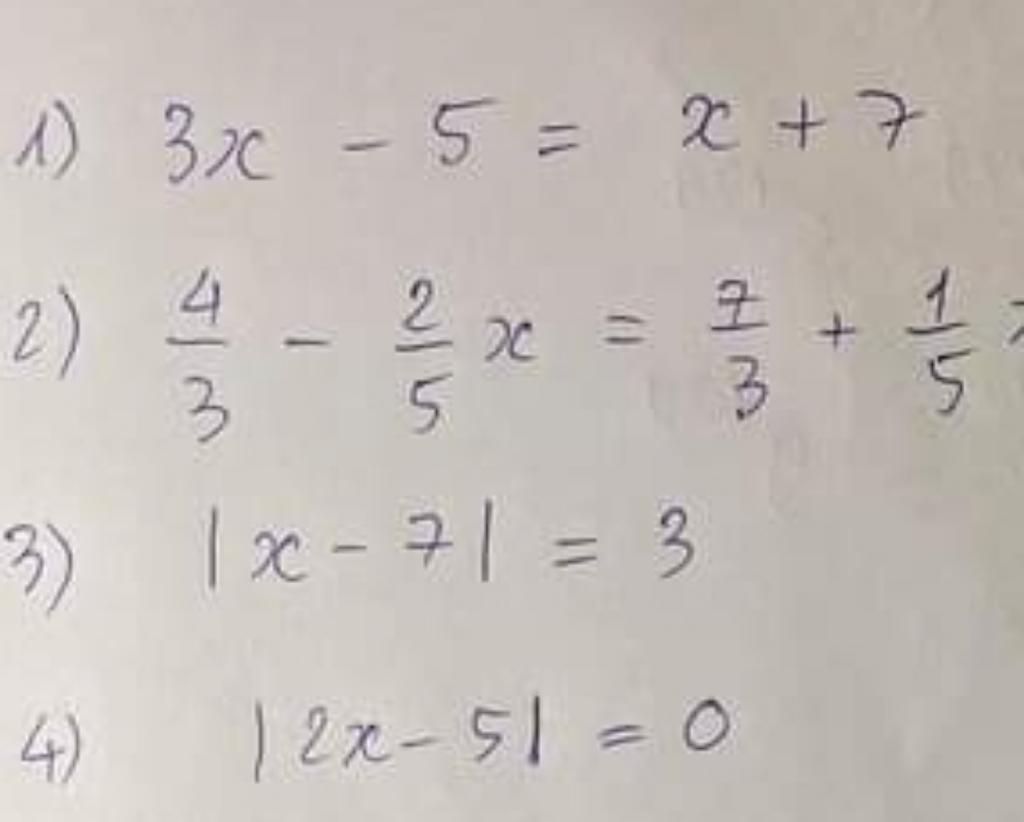 1) 3x - 5 = x + 7
2) 4/3 - 2/5 x = 7/3 + 1/5
3) |x - 7| = 3
4) |2x - 5| = 0